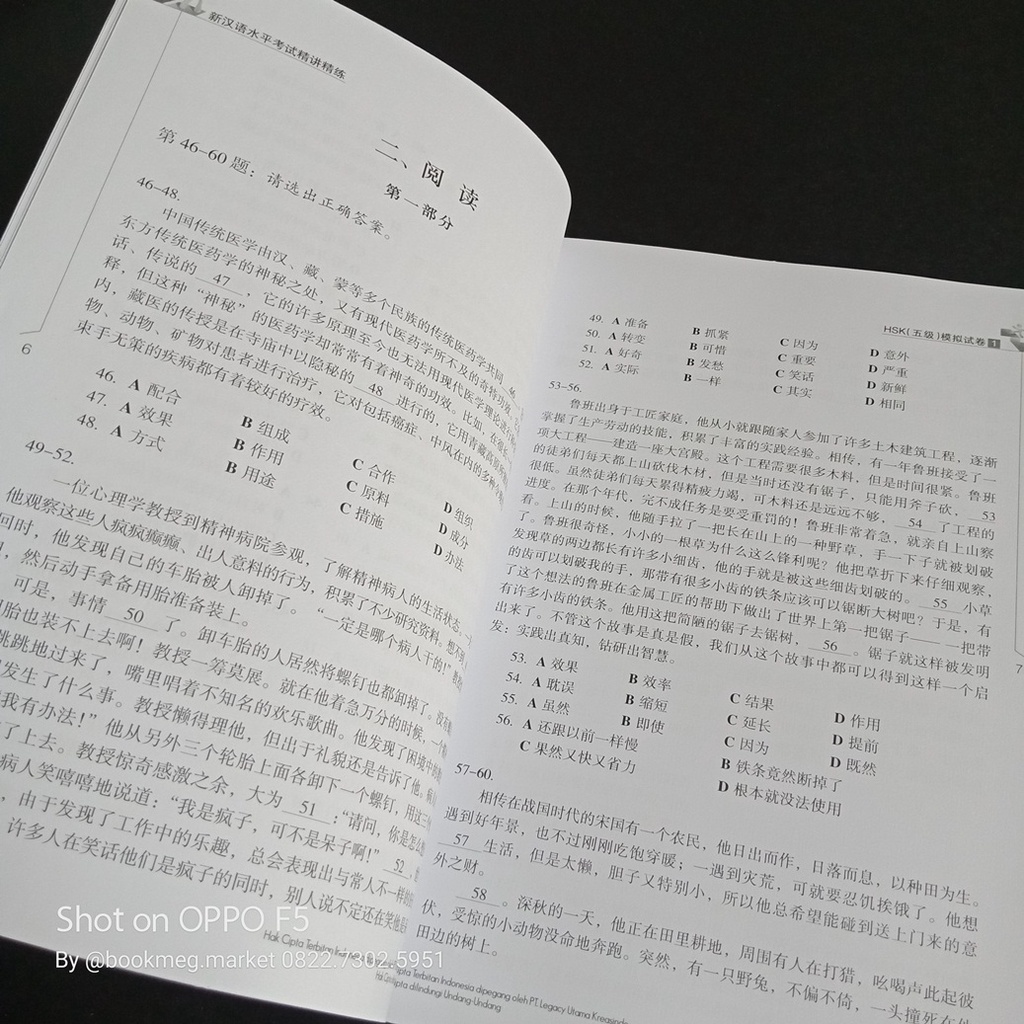 新汉语水平考试精讲精练
二、阅读
第一部分
第46-60题：请选出正确答案。
46-48.
中国传统医学由汉、藏、蒙等多个民族的传统医药学共同 46
东方传统医药学的神秘之处，又有现代医药学所不及的奇特功效
话、传说的 47 ，它的许多原理至今也无法用现代医学理论进行解
释，但这种“神秘”的医药学却常常有着神奇的功效。比如，在
内，藏医的传授是在寺庙中以隐秘的 48 进行的，它用青藏高原
物、动物、矿物对患者进行治疗，它对包括癌症、中风在内的多种
束手无策的疾病都有着较好的疗效。
46. A 配合 B 组成 C 合作 D 组织
47. A 效果 B 作用 C 原料 D 成分
48. A 方式 B 用途 C 措施 D 办法
49-52.
一位心理学教授到精神病院参观，了解精神病人的生活状态。
他观察这些人疯疯癫癫、出人意料的行为，积累了不少研究资料。想不到
回时，他发现自己的车胎被人卸掉了。“一定是哪个病人干的！”
，然后动手拿备用胎准备装上。
可是，事情 50 了。卸车胎的人居然将螺钉也都卸掉了。
胎也装不上去啊！教授一筹莫展。就在他着急万分的时候，一个
跳跳地过来了，嘴里唱着不知名的欢乐歌曲。他发现了困境中的
发生了什么事。教授懒得理他，但出于礼貌还是告诉了他。
我有办法！”他从另外三个轮胎上面各卸下一个螺钉，用这三
了上去。教授惊奇感激之余，大为 51 ：“请问，你是怎么
病人笑嘻嘻地说道：“我是疯子，可不是呆子啊！” 52 ，
，由于发现了工作中的乐趣，总会表现出与常人不一样的
许多人在笑话他们是疯子的同时，别人说不定还在笑他
6
HSK（五级）模拟试卷 1
49. A 准备 B 抓紧 C 因为 D 意外
50. A 转变 B 可惜 C 重要 D 严重
51. A 好奇 B 发愁 C 笑话 D 新鲜
52. A 实际 B 一样 C 其实 D 相同
53-56.
鲁班出身于工匠家庭，他从小就跟随家人参加了许多土木建筑工程，逐渐
掌握了生产劳动的技能，积累了丰富的实践经验。相传，有一年鲁班接受了一
项大工程——建造一座大宫殿。这个工程需要很多木料，但是时间很紧。鲁班
的徒弟们每天都上山砍伐木材，但是当时还没有锯子，只能用斧子砍， 53
很低。虽然徒弟们每天累得精疲力竭，可木料还是远远不够， 54 了工程的
进度。在那个年代，完不成任务是要受重罚的！鲁班非常着急，就亲自上山察
看。上山的时候，他随手拉了一把长在山上的一种野草，手一下子就被划破
了。鲁班很奇怪，小小的一根草为什么这么锋利呢？他把草折下来仔细观察，
发现草的两边都长有许多小细齿，他的手就是被这些细齿划破的。 55 小草
的齿可以划破我的手，那带有很多小齿的铁条应该可以锯断大树吧？于是，有
了这个想法的鲁班在金属工匠的帮助下做出了世界上第一把锯子——一把带
有许多小齿的铁条。他用这把简陋的锯子去锯树， 56 。锯子就这样被发明
出来了。不管这个故事是真是假，我们从这个故事中都可以得到这样一个启
发：实践出真知，钻研出智慧。
53. A 效果 B 效率 C 结果 D 作用
54. A 耽误 B 缩短 C 延长 D 提前
55. A 虽然 B 即使 C 因为 D 既然
56. A 还跟以前一样慢 B 铁条竟然断掉了
C 果然又快又省力 D 根本就没法使用
57-60.
相传在战国时代的宋国有一个农民，他日出而作，日落而息，以种田为生。
遇到好年景，也不过刚刚吃饱穿暖；一遇到灾荒，可就要忍饥挨饿了。他想
57 生活，但是太懒，胆子又特别小，所以他总希望能碰到送上门来的意
外之财。
58 。深秋的一天，他正在田里耕地，周围有人在打猎，吆喝声此起彼
伏，受惊的小动物没命地奔跑。突然，有一只野兔，不偏不倚，一头撞死在他
田边的树上。
7
Shot on OPPO F5
By @bookmeg.market 0822.7302.5951
Hak Cipta Terbitan
Cipta Terbitan Indonesia dipegang oleh PT. Legacy Utama Kreasindo
dilindungi Undang-Undang